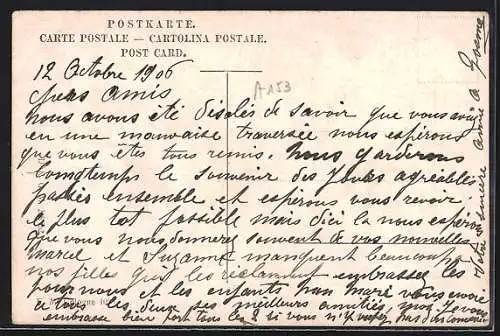 POSTKARTE.
CARTE POSTALE — CARTOLINA POSTALE.
POST CARD.
12 Octobre 1906
A 153
Chers Amis
nous avons été désolés de savoir que vous aviez
eu une mauvaise traversée nous espérons
que vous êtes tous remis. Nous garderons
longtemps le souvenir des jours agréables
passés ensemble et espérons vous revoir
le plus tot possible mais dici la nous espérons
que vous nous donnerez souvent de vos nouvelles
Marcel et Suzanne manquent beaucoup
nos filles que les réclament embrassez les
pour nous et les enfants mon mari vous envoie
a tous les deux ses meilleurs amitiés moi je vous
embrasse bien fort tous les
Votre sincère amie